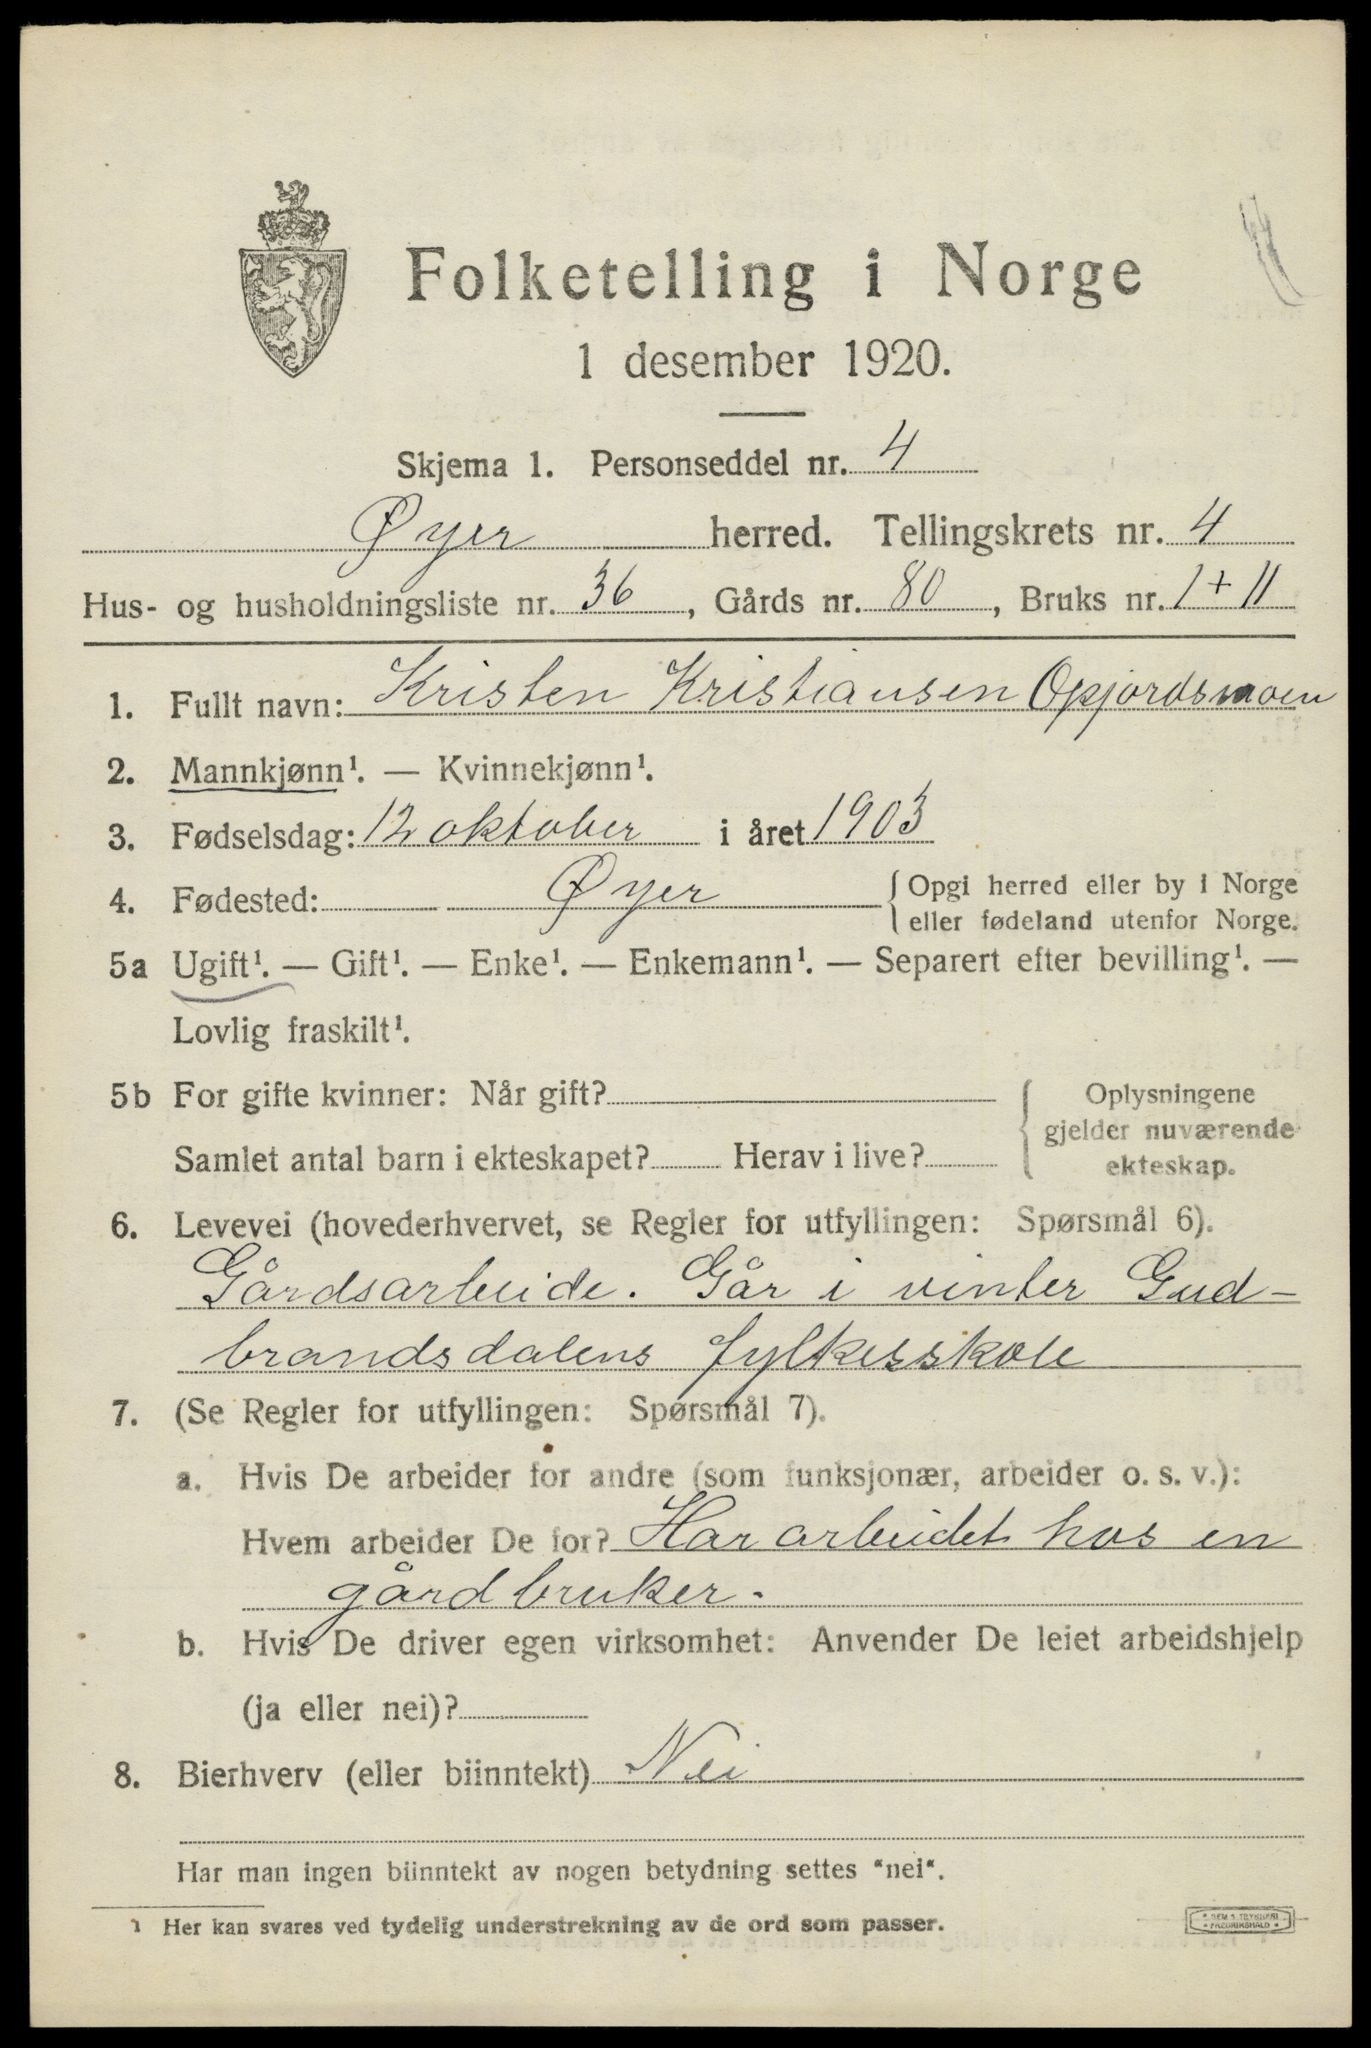 Folketelling i Norge
1 desember 1920.
Skjema 1. Personseddel nr. 4
Øyer herred. Tellingskrets nr. 4
Hus- og husholdningsliste nr. 36, Gårds nr. 80, Bruks nr. 1 + 11
1. Fullt navn: Kristen Kristiansen Opjordsmoen
2. Mannkjønn¹. — Kvinnekjønn¹.
3. Fødselsdag: 12 oktober i året 1903
4. Fødested: Øyer { Opgi herred eller by i Norge
eller fødeland utenfor Norge.
5a Ugift¹. — Gift¹. — Enke¹. — Enkemann¹. — Separert efter bevilling¹. —
Lovlig fraskilt¹.
5b For gifte kvinner: Når gift? { Oplysningene
gjelder nuværende
Samlet antal barn i ekteskapet? Herav i live? ekteskap.
6. Levevei (hovederhvervet, se Regler for utfyllingen: Spørsmål 6).
Gårdsarbeide. Går i vinter Gud-
brandsdalens fylkesskole
7. (Se Regler for utfyllingen: Spørsmål 7).
a. Hvis De arbeider for andre (som funksjonær, arbeider o. s. v.):
Hvem arbeider De for? Har arbeidet hos en
gårdbruker.
b. Hvis De driver egen virksomhet: Anvender De leiet arbeidshjelp
(ja eller nei)?
8. Bierhverv (eller biinntekt) Nei
Har man ingen biinntekt av nogen betydning settes "nei".
¹ Her kan svares ved tydelig understrekning av de ord som passer.